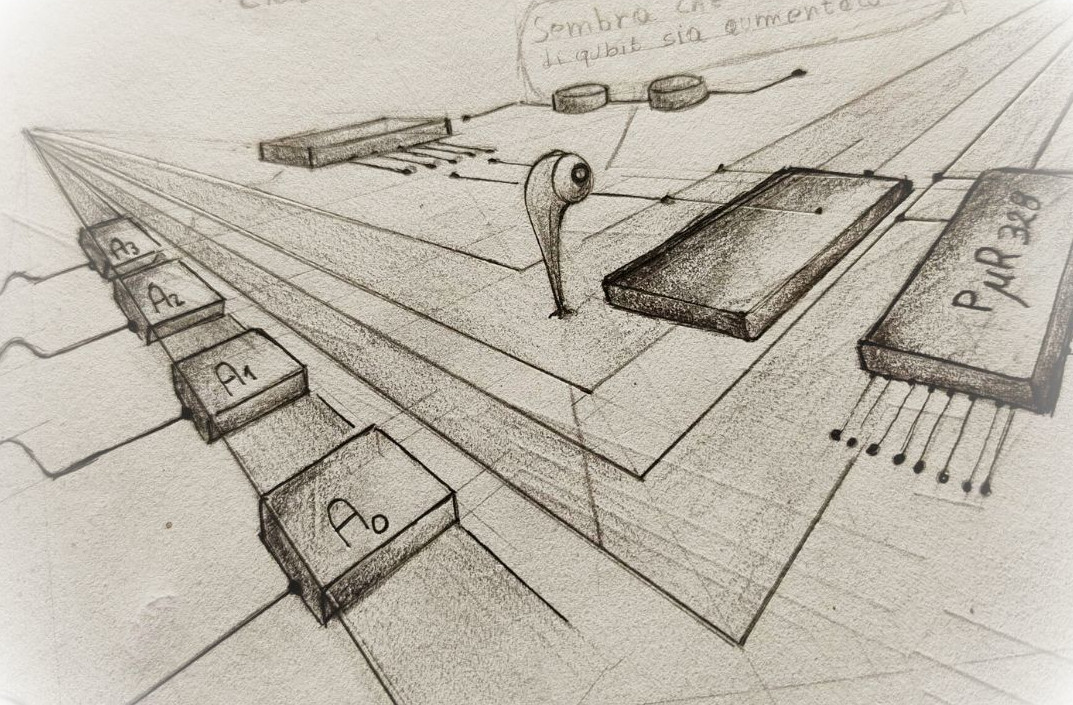 Sembra che
di qubit sia aumentato
A3
A2
A1
A0
PμR 328